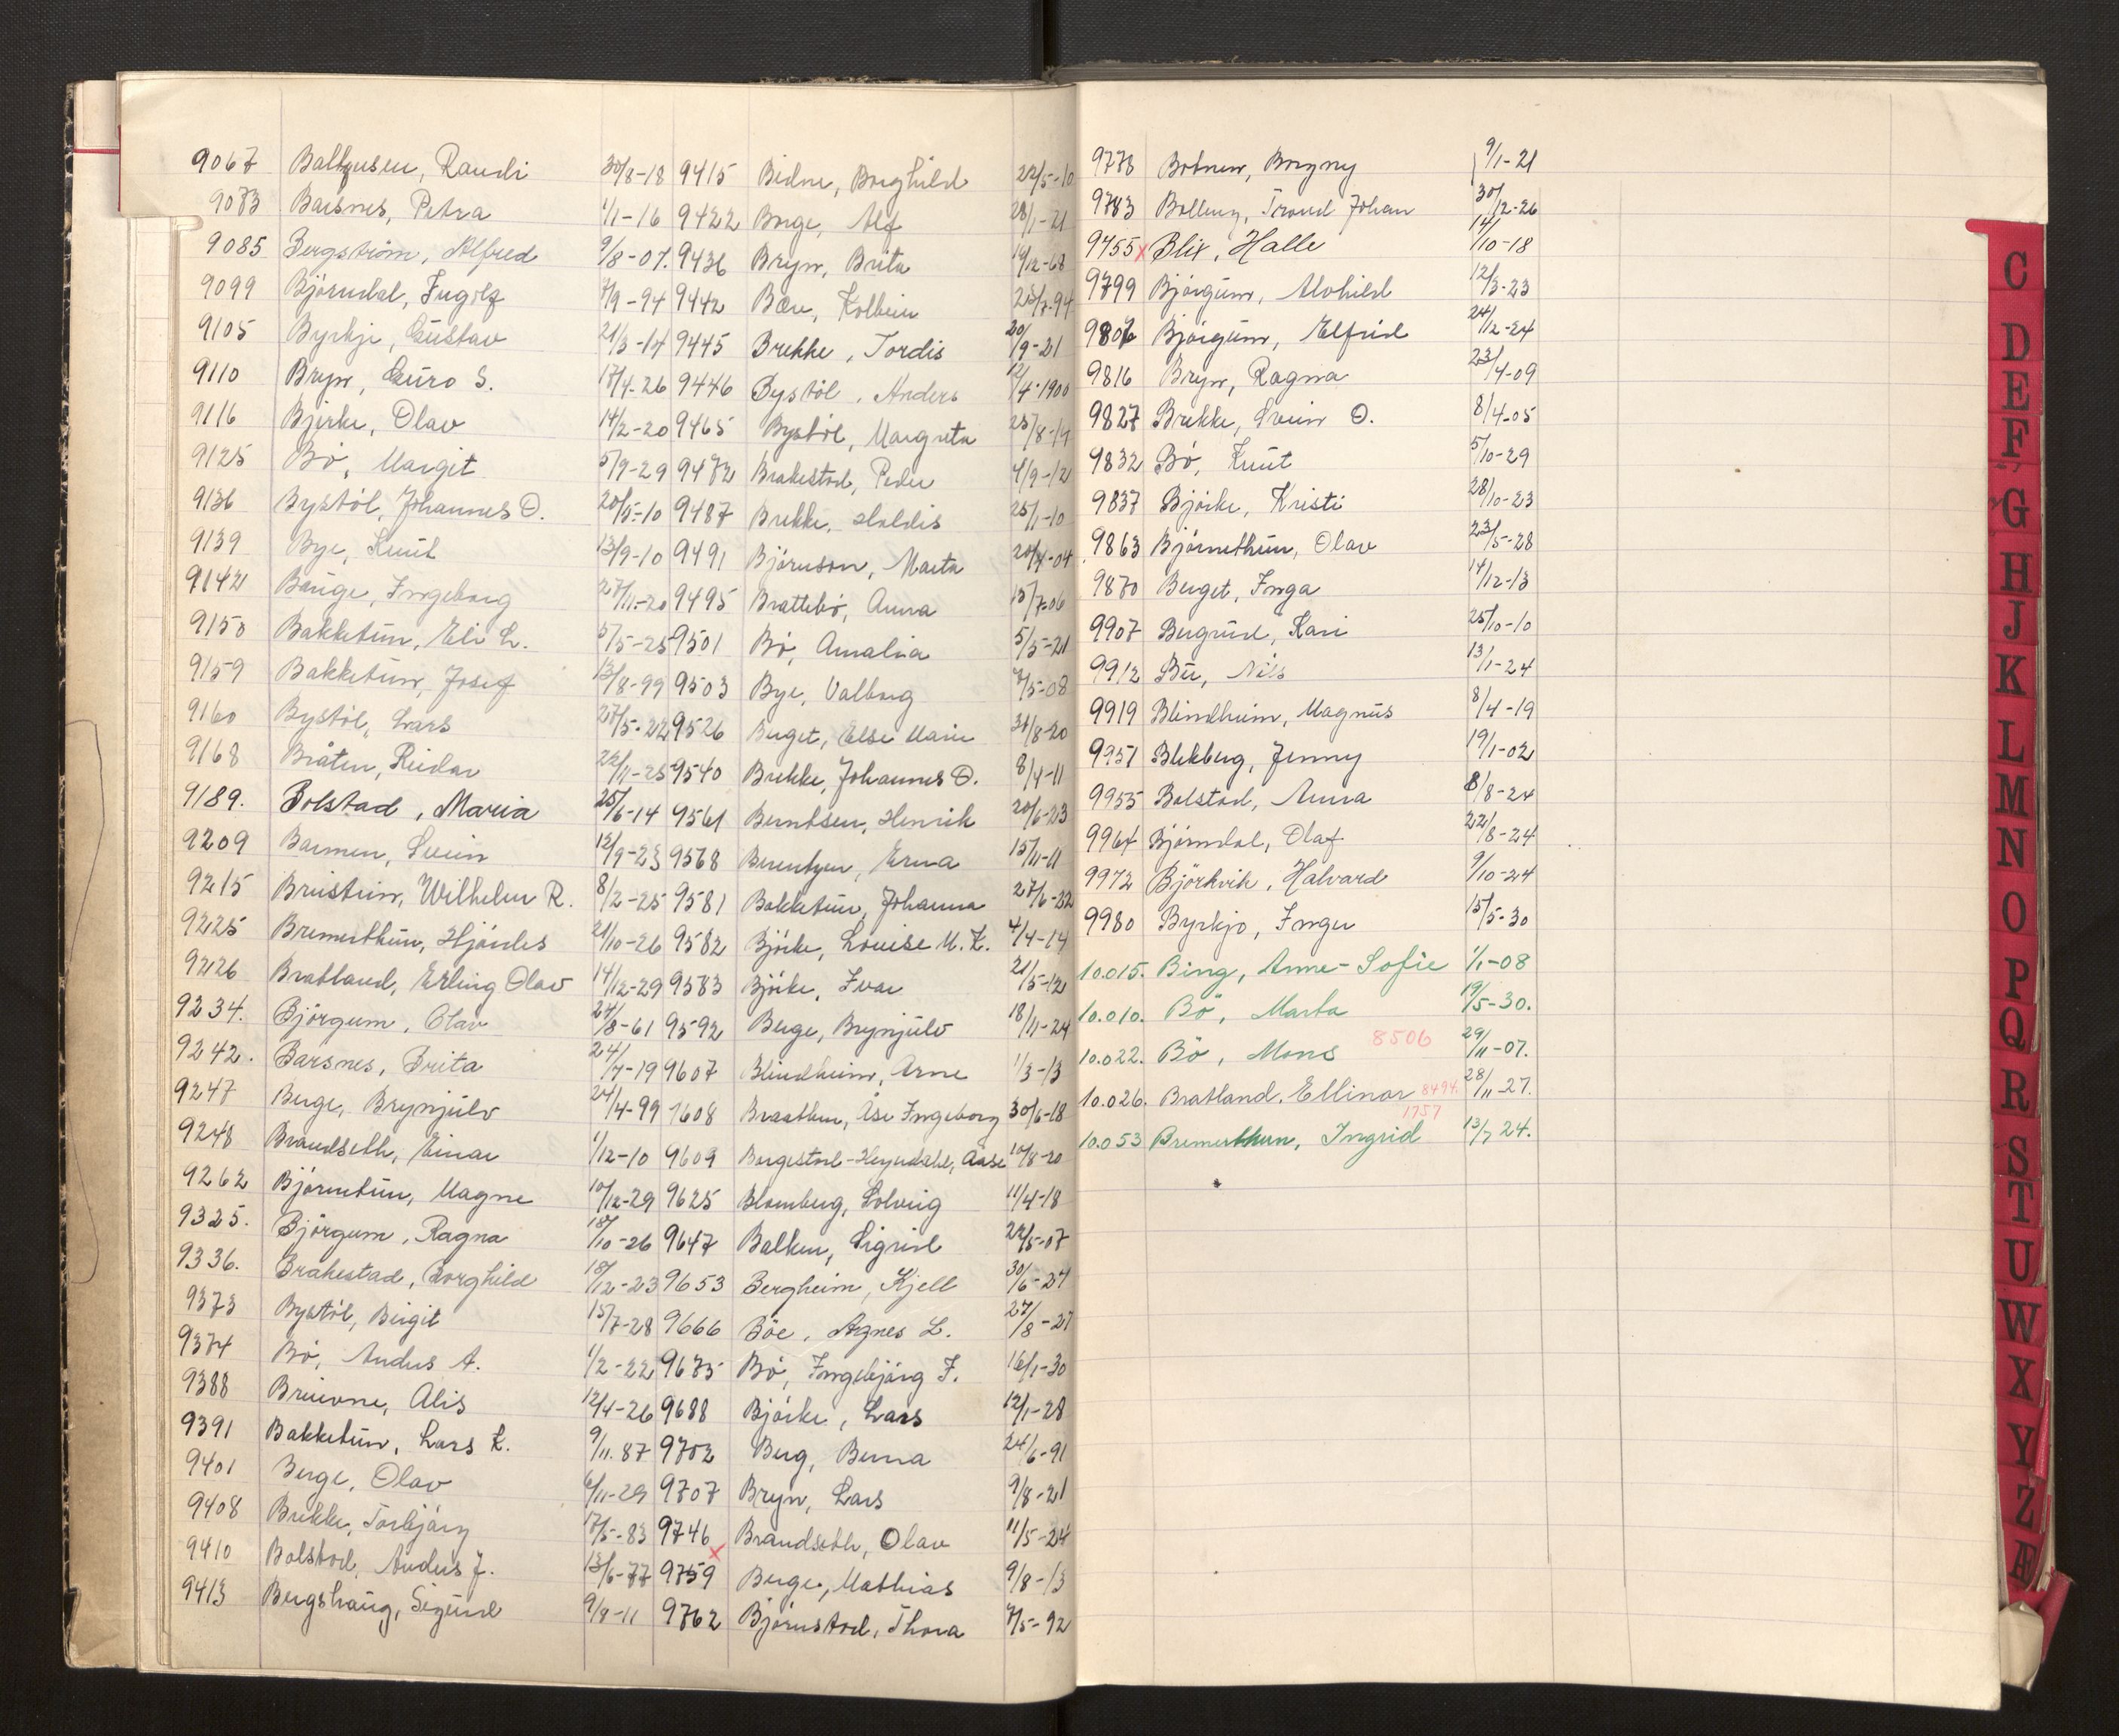 9067 Balthusen, Randi 30/8-18
9083 Barsnes, Petra 1/1-16
9085 Bergström, Alfred 9/8-07.
9099 Björndal, Ingolf 7/9-94
9105 Byrkje, Gustav 21/3-14
9110 Bryn, Guro S. 17/4-26
9116 Bjerke, Olav 14/2-20
9125 Bö, Margit 5/9-29
9136 Bystöl, Johannes O. 20/5-10
9139 Bye, Knut 13/9-10
9142 Bauge, Ingeborg 27/11-20
9150 Bakketun, Eli L. 5/5-25
9159 Bakketun, Josef 13/8-99
9160 Bystöl, Lars 27/5-22
9168 Bråten, Reidar 22/11-25
9189. Bolstad, Maria 25/6-14
9209 Barmen, Svein 12/9-23
9215 Breistein, Wilhelm R. 8/2-25
9225 Bremerthun, Hjördes 21/10-26
9226 Bratland, Erling Olav 14/12-29
9234. Björgum, Olav 24/8-61
9242. Barsnes, Brita 24/7-19
9247 Berge, Brynjulv 24/4-99
9248 Brandseth, Einar 1/12-10
9262 Björnetun, Magne 10/12-29
9325. Björgum, Ragna 18/10-26
9336. Brakestad, Borghild 18/12-23
9373 Bystöl, Birgit 15/7-28
9374 Bö, Anders A. 1/2-22
9388 Breivne, Alis 12/4-26
9391 Bakketun, Lars L. 9/11.87
9401 Berge, Olav 6/11-29
9408 Brekke, Torbjörg 17/5-83
9410 Bolstad, Anders J. 13/6-77
9413 Bergshaug, Sigurd 9/8-11
9415 Bidne, Borghild 22/5-10
9422 Berge, Alf 28/1-21
9436 Bryn, Brita 19/12-68
9442 Bære, Kolbein 25/7-94
9445 Brekke, Tordis 20/9-21
9446 Bystöl, Anders 12/4-1900
9465 Bystöl, Margreta 25/8-19
9472 Brakestad, Peder 4/9-12
9487 Brekke, Haldis 25/1-10
9491 Björnson, Marta 20/4-04
9495 Brattebö, Anna 15/7-06
9501 Bö, Amalia 5/5-21
9503 Bye, Valborg 7/5-08
9526 Berget, Else Marie 31/8-20
9540 Brekke, Johannes O. 8/4-11
9561 Berntsen, Henrik 20/6-23
9568 Berentzen, Erna 15/11-11
9581 Bakketun, Johanna 27/6-22
9582 Björke, Louise M. K. 4/4-14
9583 Björke, Ivar 21/5-12
9592 Berge, Brynjulv 18/11-24
9607 Blindheim, Arne 1/3-13
9608 Braathen, Åse Ingeborg 30/6-18
9609 Borgestad-Heyerdahl, Aase 10/8-20
9625 Blomberg, Solveig 11/4-18
9647 Balken, Sigrid 22/5-07
9653 Bergheim, Kjell 30/6-24
9666 Böe, Agnes L. 27/8-27
9675 Bö, Ingebjörg J. 16/1-30
9688 Björke, Lars 12/1-28
9702 Berg, Berna 24/6-91
9707 Bryn, Lars 9/8-21
9746 Brandseth, Olav 11/5-24
x
9759 Berge, Mathias 9/8-13
9762 Björnstad, Thora 7/5-92
9778 Botnen, Borgny 9/1-21
9783 Bolling, Trond Johan 30/12-26
9755 x Blix, Halle 14/10-18
9799 Björgum, Alvhild 12/3-23
9806 Björgum, Elfrid 24/12-24
9816 Bryn, Ragna 23/4-09
9827 Brekke, Svein O. 8/4-05
9832 Bö, Knut 5/10-29
9837 Björke, Kristi 28/10-23
9863 Björnethun, Olav 23/5-28
9870 Berget, Inga 14/12-13
9907 Bergrud, Kari 25/10-10
9912 Bu, Nils 13/1-24
9919 Blindheim, Magnus 8/4-19
9951 Blekberg, Jenny 19/1-02
9955 Bolstad, Anna 8/8-24
9964 Björndal, Olaf 22/8-24
9972 Björkvik, Halvard 9/10-24
9980 Byrkjo, Inger 15/5-30
10.015. Bing, Anne-Sofie 1/1-08
10.010. Bö, Marta 19/5-30.
10.022. Bö, Mons 8506 29/11-07.
10.026. Bratland, Ellinor 8494. 28/11-27.
1757
10.053 Bremerthun, Ingrid 13/7 24.
C
D
E
F
G
H
J
K
L
M
N
O
P
Q
R
S
T
U
W
X
Y
Z
Æ